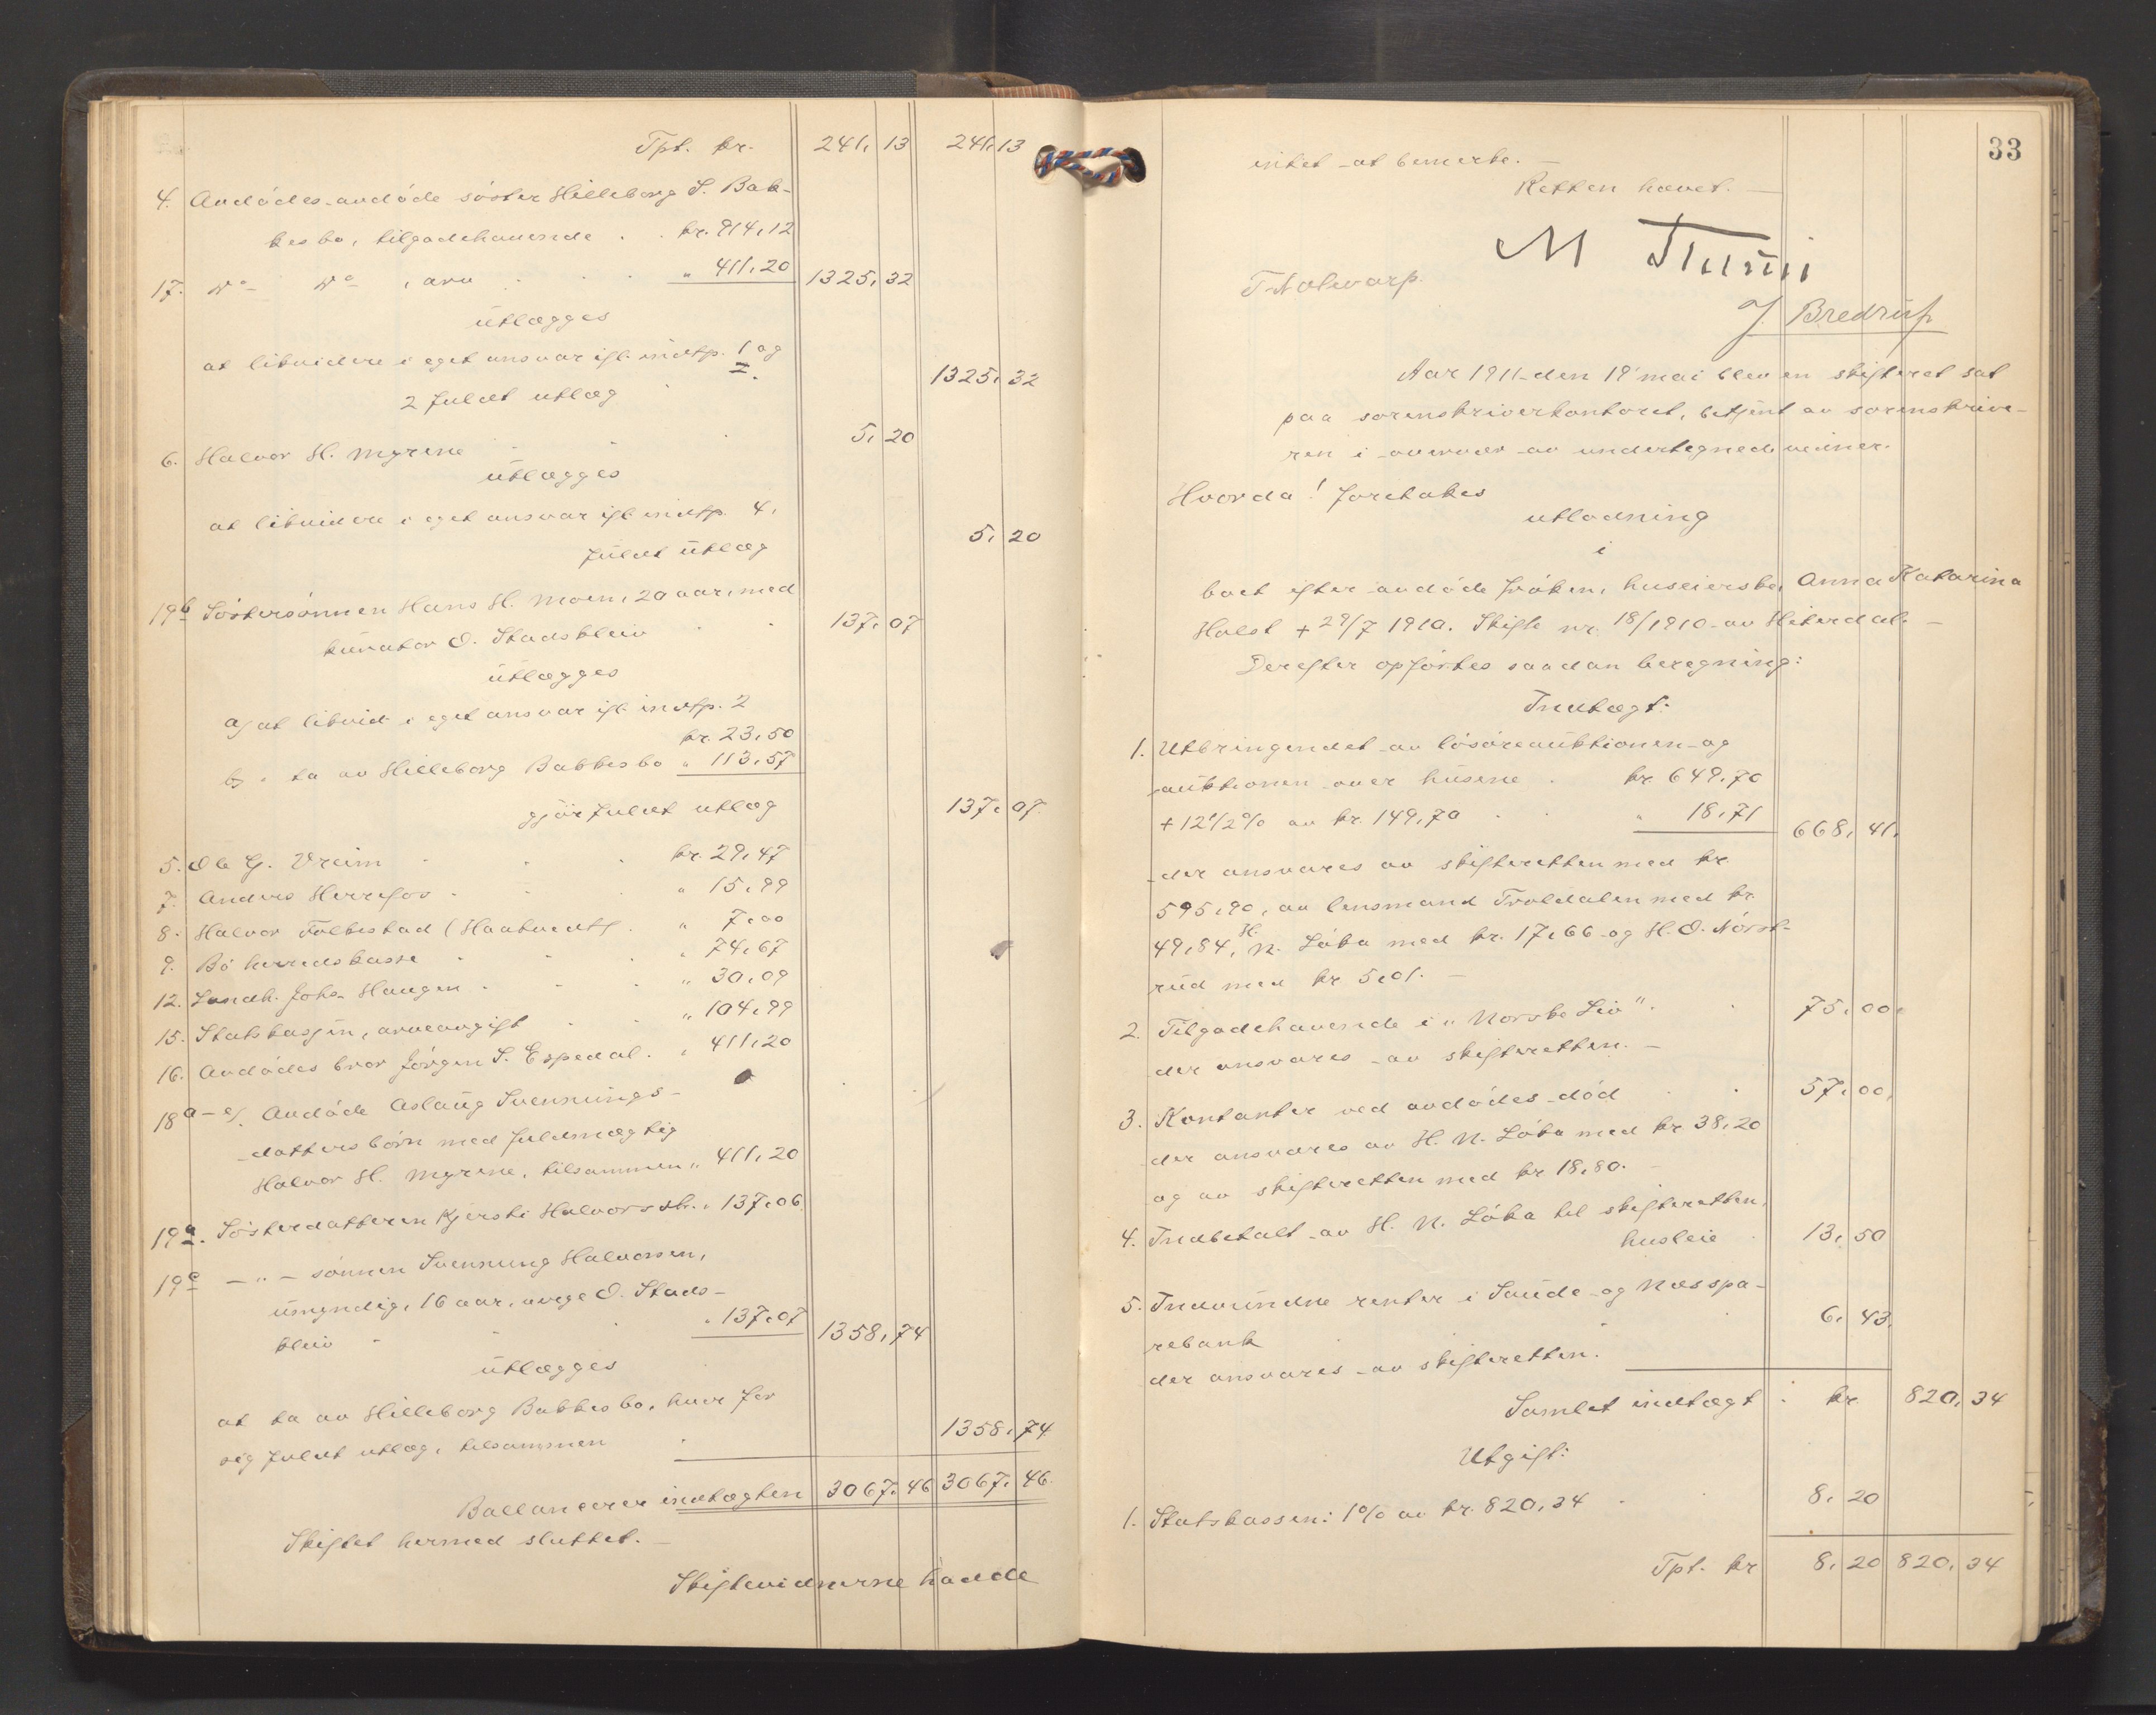 Tpt. kr. 241,13 241,13
4. Avdödes avdöde söster Hilleborg S. Bak-
kesbo, tilgodehavende . . kr. 914,12
17. do do , arv . . . " 411,20 1325,32
utlægges
at likvidere i eget ansvar ifl. indtp. 1 og
2 fuldt utlæg 1325,32
6. Halvor H. Myrene . . . 5,20
utlægges
at likvidere i eget ansvar ifl. indtp. 4,
fuldt utlæg 5,20
19b Söstersönnen Hans H. Moen, 20 aar, med
kurator O. Stadskleiv . . 137,07
utlægges
a) at likvid. i eget ansvar ifl. indtp. 2
kr. 23,50
b) " ta av Hilleborg Bakkesbo " 113,57
gjör fuldt utlæg 137,07
5. Ole G. Vreim . . . kr. 29,47
7. Anders Herrefos . . . " 15,99
8. Halvor Folkestad (Haatvedt) . " 7,00
9. Bö herredskasse . . . " 74,67
12. Landh. Johs. Haugen . . . " 30,09
15. Statskassen, arveavgift . . " 104,99
16. Avdödes bror Jörgen S. Espedal . " 411,20
18a-e). Avdöde Aslaug Svennungs-
datters börn med fuldmægtig
Halvor H. Myrene, tilsammen " 411,20
19a. Sösterdatteren Kjersti Halvorsdtr. " 137,06
19c — " — sönnen Svennung Halvorsen,
umyndig, 16 aar, verge O. Stads-
kleiv . . . " 137,07 1358,74
utlægges
at ta av Hilleborg Bakkesbo, hver for
sig fuldt utlæg, tilsammen . 1358,74
Ballancerer indtægten 3067,46 3067,46
Skiftet hermed sluttet. —
Skiftevidnerne hadde
33
intet at bemerke. —
Retten hævet. —
M
J. Bredrup
Aar 1911 den 19' mai blev en skifteret sat
paa sorenskriverkontoret, betjent av sorenskrive-
ren i overvær av undertegnede vidner.
Hvorda! foretokes
utlodning
i
boet efter avdöde fröken, huseierske, Anna Katarina
Holst + 29/7 1910. Skifte nr. 18/1910 av Hiterdal. —
Derefter opförtes saadan beregning:
Indtægt:
1. Utbringendet av lösöreauktionen og
auktionen over husene . kr. 649,70
+ 12 1/2 % av kr. 149,70 . . " 18,71 668,41
der ansvares av skifteretten med kr.
595,90, av lensmand Troldalen med kr.
49,84, H. N. Löka med kr. 17,66 og H. O. Nörst-
rud med kr 5,01. —
2. Tilgodehavende i "Norske Liv" . . 75,00
der ansvares av skifteretten. —
3. Kontanter ved avdödes död . . 57,00
der ansvares av H. N. Löka med kr 38,20
og av skifteretten med kr 18,80. —
4. Indbetalt av H. N. Löka til skifteretten,
husleie . 13,50
5. Indvundne renter i Saude og Nes spa-
rebank . . 6,43
der ansvares av skifteretten.
Samlet indtægt : kr 820,34
Utgift:
1. Statskassen: 1% av kr. 820,34 . . 8,20
Tpt. kr 8,20 820,34